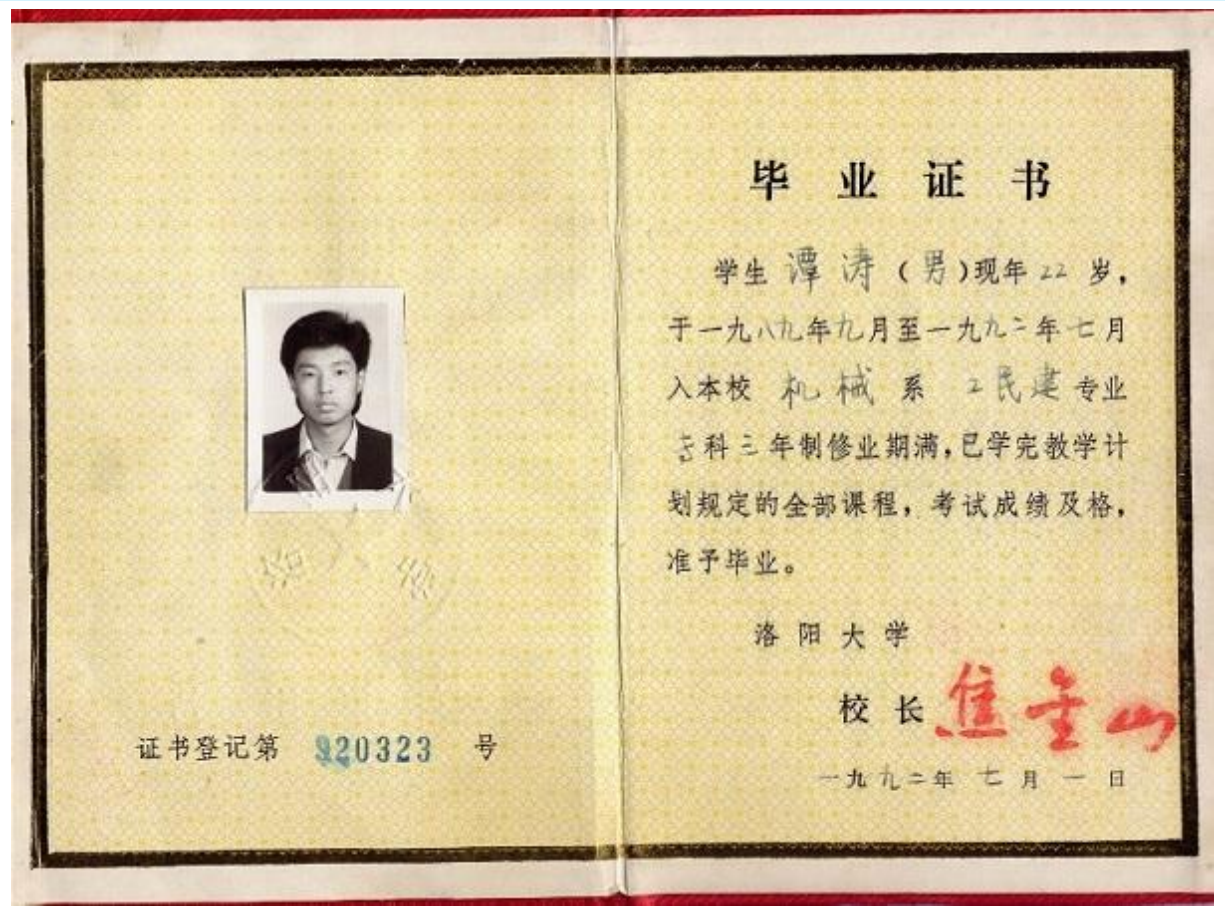 证书登记第 920323 号
毕业证书
学生 谭涛 (男)现年 22 岁,
于一九八九年九月至一九九二年七月
入本校 机械 系 工民建 专业
专科三年制修业期满,已学完教学计
划规定的全部课程,考试成绩及格,
准予毕业。
洛阳大学
校长 焦金山
一九九二年 七月 一日